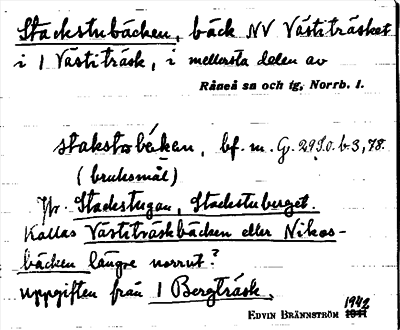 Stackstubäcken, bäck NV Västiträsket
i 1 Västiträsk, i mellersta delen av
Råneå sn och tg, Norrb. l.
stakstobäken, bf. m. G. 29
(bruksmål)
Jfr. Stackstugan, Stackstuberget.
Kallas Västiträskbäcken eller Nikos-
bäcken längre norrut?
uppgiften från 1 Bergträsk.
EDVIN BRÄNNSTRÖM 1942